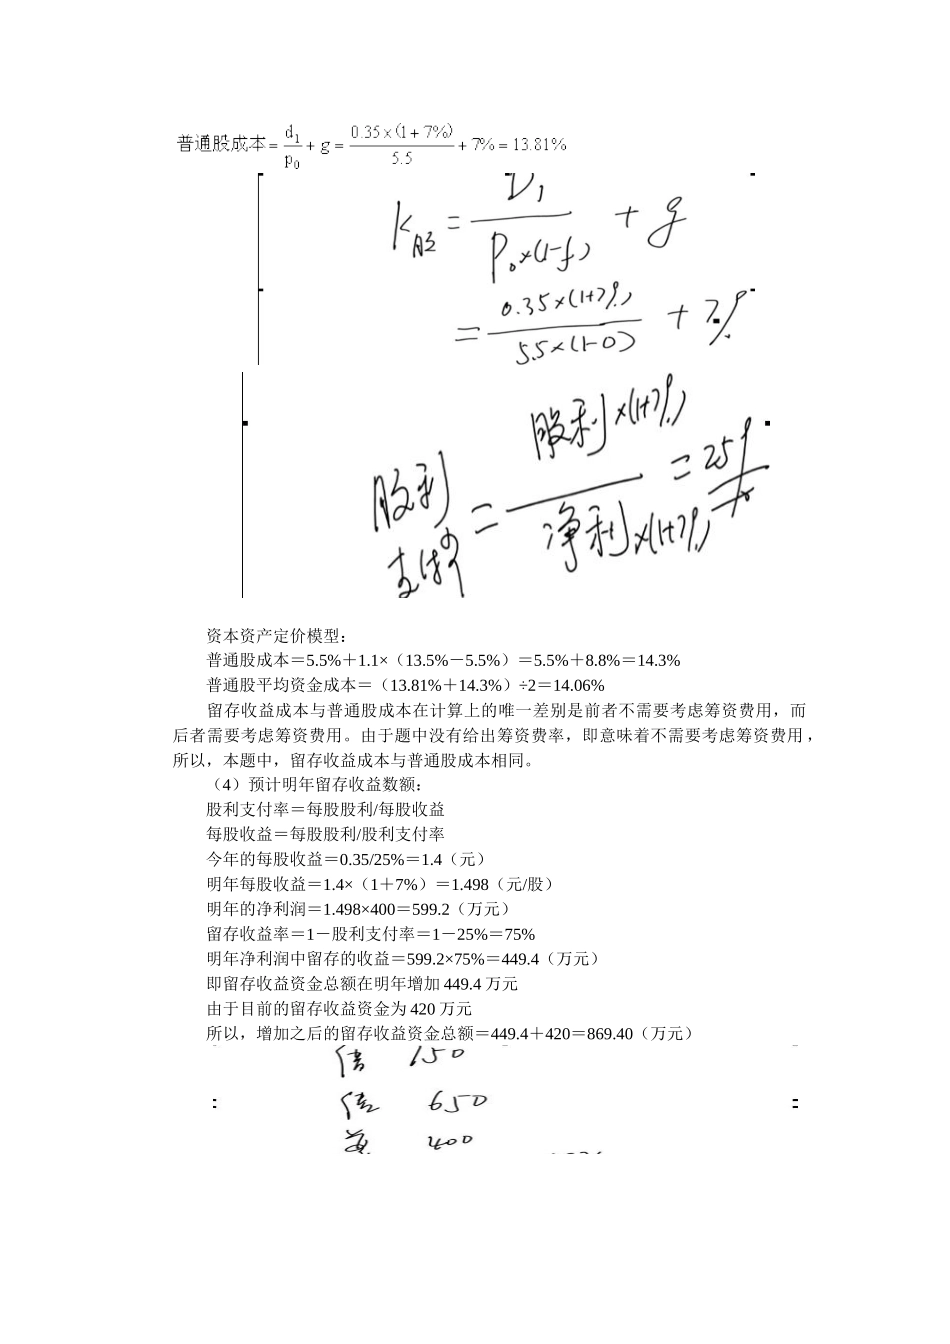 普通股成本=d1/p0+g=0.35×(1+7%)/5.5+7%=13.81%
K股=D1/P0×(1-f)+g
=0.35×(1+7%)/5.5×(1-0)+7%
股利支付率=股利×(1+7%)/净利×(1+7%)=25%
资本资产定价模型：
普通股成本＝5.5%＋1.1×（13.5%－5.5%）＝5.5%＋8.8%＝14.3%
普通股平均资金成本＝（13.81%＋14.3%）÷2＝14.06%
留存收益成本与普通股成本在计算上的唯一差别是前者不需要考虑筹资费用，而
后者需要考虑筹资费用。由于题中没有给出筹资费率，即意味着不需要考虑筹资费用，
所以，本题中，留存收益成本与普通股成本相同。
（4）预计明年留存收益数额：
股利支付率＝每股股利/每股收益
每股收益＝每股股利/股利支付率
今年的每股收益＝0.35/25%＝1.4（元）
明年每股收益＝1.4×（1＋7%）＝1.498（元/股）
明年的净利润＝1.498×400＝599.2（万元）
留存收益率＝1－股利支付率＝1－25%＝75%
明年净利润中留存的收益＝599.2×75%＝449.4（万元）
即留存收益资金总额在明年增加 449.4 万元
由于目前的留存收益资金为 420 万元
所以，增加之后的留存收益资金总额＝449.4＋420＝869.40（万元）
借 150
650
400